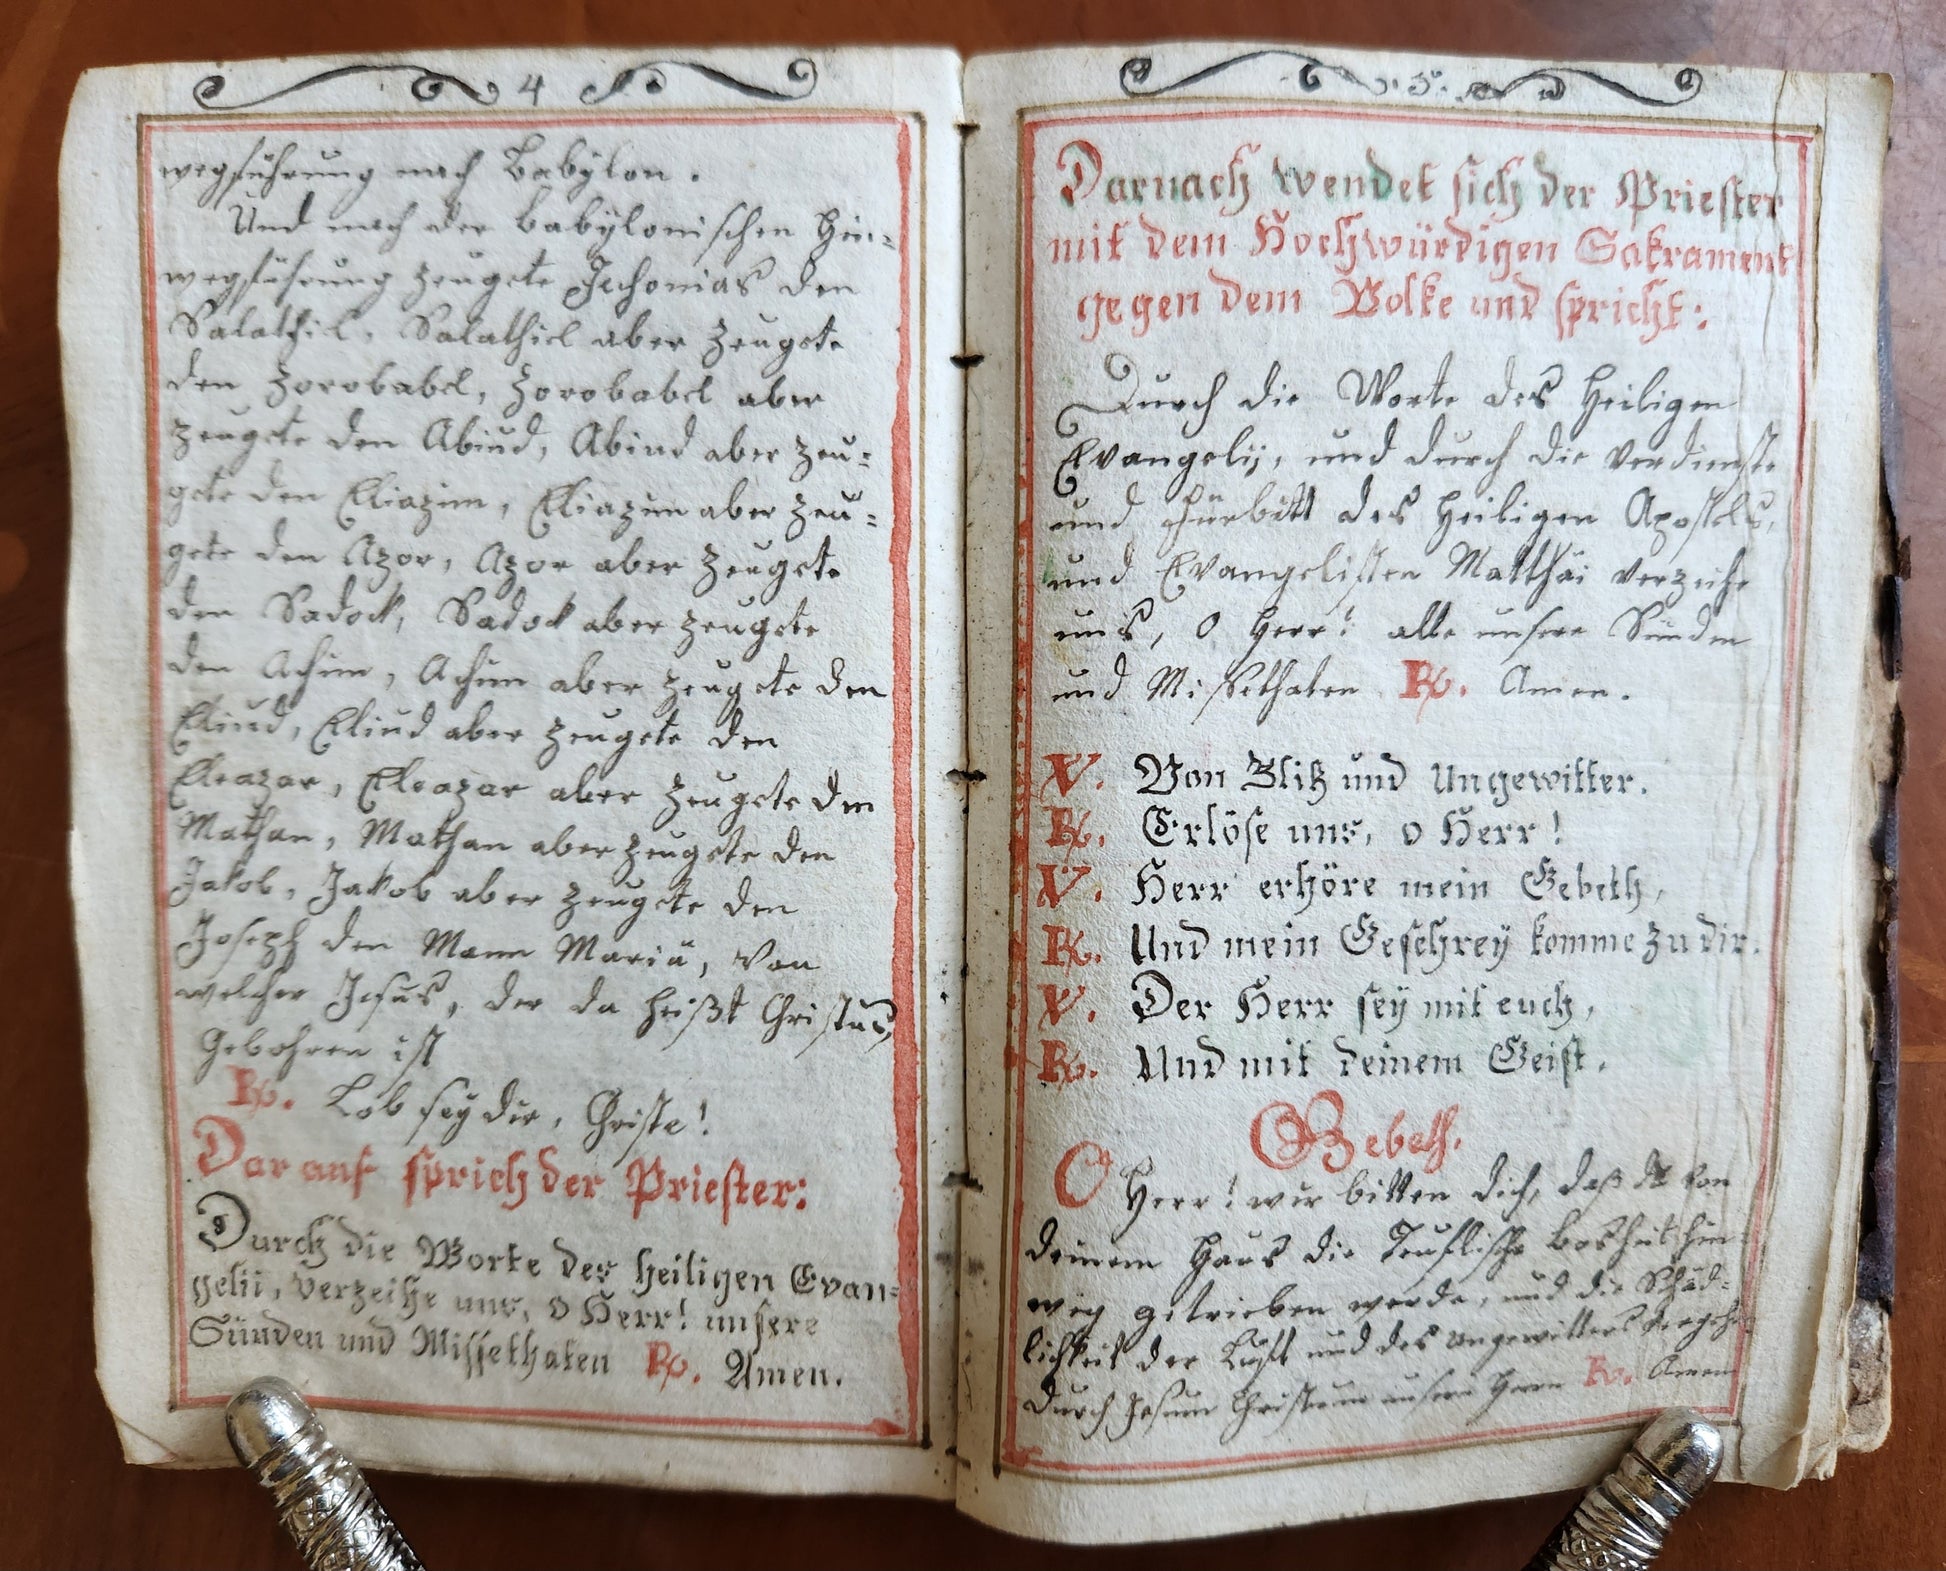 4
wegführung nach Babylon.
Und nach der babylonischen Hin-
wegführung zeugete Jechonias den
Salathiel, Salathiel aber zeugete
den Zorobabel, Zorobabel aber
zeugete den Abiud, Abiud aber zeu-
gete den Eliazim, Eliazim aber zeu-
gete den Azor, Azor aber zeugete
den Sadock, Sadock aber zeugete
den Achim, Achim aber zeugete den
Eliud, Eliud aber zeugete den
Eleazar, Eleazar aber zeugete den
Mathan, Mathan aber zeugete den
Jakob, Jakob aber zeugete den
Joseph den Mann Mariä, von
welcher Jesus, der da heißt Christus,
Gebohren ist
R. Lob sey dir, Christe!
Darauf sprich der Priester:
Durch die Worte des heiligen Evan-
gelii, verzeihe uns, o Herr! unsere
Sünden und Missethaten R. Amen.
5.
Darnach wendet sich der Priester
mit dem Hochwürdigen Sakrament
gegen dem Volke und spricht:
Durch die Worte des Heiligen
Evangelij, und durch die verdienste
und Fürbitt des Heiligen Apostels,
und Evangelisten Matthäi verzeihe
uns, O Herr! alle unsere Sünden
und Missethaten R. Amen.
V. Von Blitz und Ungewitter.
R. Erlöse uns, o Herr!
V. Herr erhöre mein Gebeth,
R. Und mein Geschrey komme zu dir.
V. Der Herr sey mit euch,
R. Und mit deinem Geist.
Gebeth.
O Herr! wir bitten dich, daß da von
deinem Haus die Teuflische Bosheit hin-
weg getrieben werde, und die Schäd-
lichkeit der Luft und des ungewitters
durch Jesum Christum unsern Herrn R. Amen